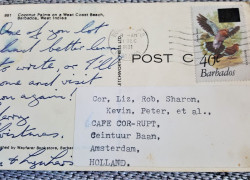 981 Coconut Palms on a West Coast Beach,
Barbados, West Indies
One of you lot
had better learn
to write, or I'll
come and visit
you again.
Merry
Christmas
POST C
40c
Barbados
Cor, Liz, Rob, Sharon.
Kevin, Peter, et al.,
CAFE COR-RUPT,
Ceintuur Baan,
Amsterdam,
HOLLAND.
by Wayfarer Bookstore, Barbados